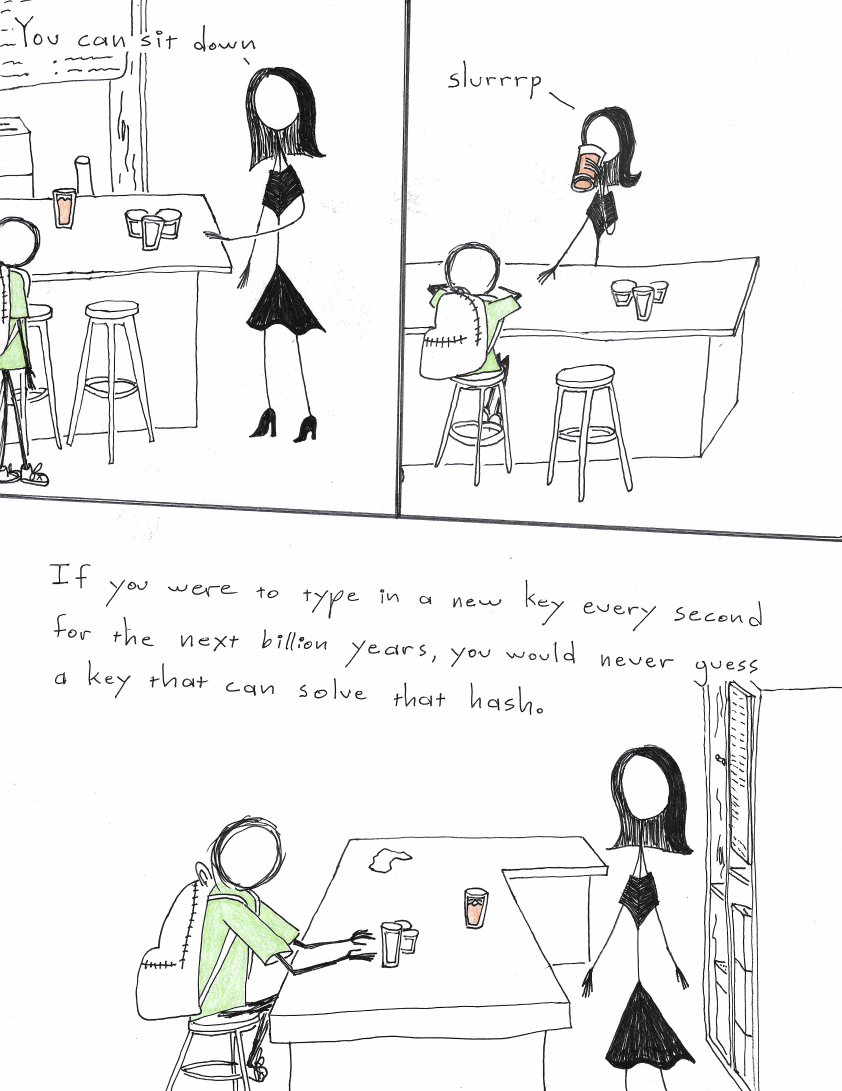 You can sit down
slurrrp
If you were to type in a new key every second
for the next billion years, you would never guess
a key that can solve that hash.